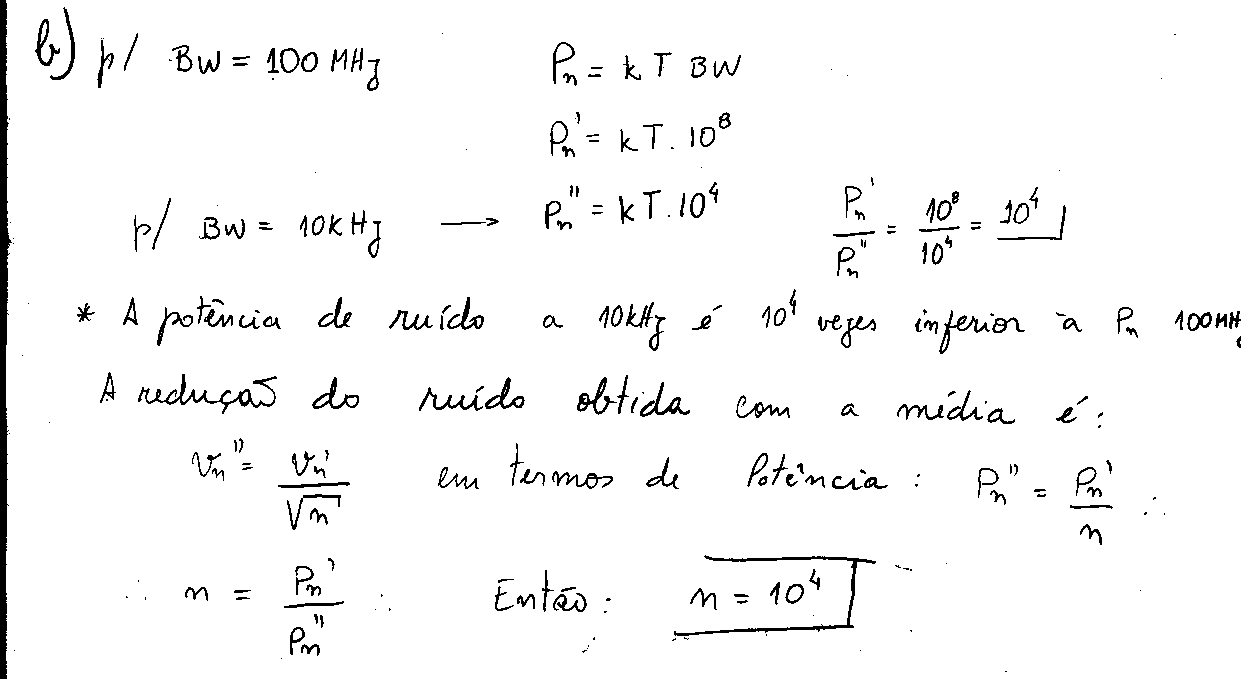 b) p/ BW = 100 MHz Pn = k T BW
Pn' = kT. 10⁸
p/ BW = 10KHz → Pn" = kT.10⁴ Pn'/Pn" = 10⁸/10⁴ = 10⁴
* A potência de ruído a 10kHz é 10⁴ vezes inferior à Pn 100MHz
A redução do ruído obtida com a média é:
Vn" = Vn'/√n em termos de Potência : Pn" = Pn'/n ∴
∴ n = Pn'/Pn" ∴ Então: n = 10⁴